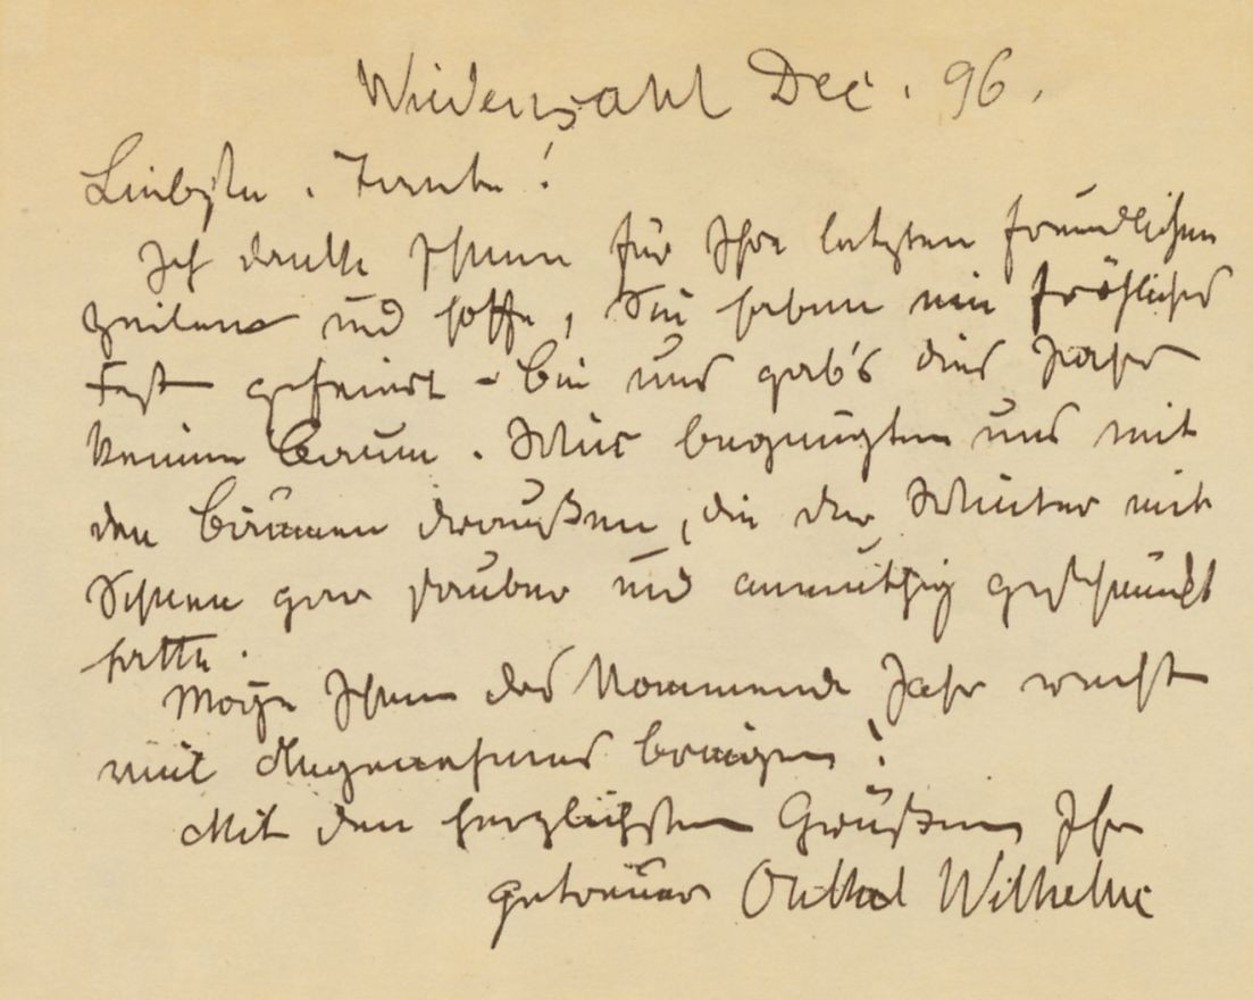 Wiedensahl Dec. 96.
Liebste Tante!
Ich danke Ihnen für Ihre letzten freundlichen
Zeilen und hoffe, Sie haben ein fröhliches
Fest gefeiert - Bei uns gab's dies Jahr
keinen Baum. Wir begnügten uns mit
den Bäumen draußen, die der Winter mit
Schnee gar sauber und anmuthig geschmückt
hatte.
Möge Ihnen das kommende Jahr recht
viel Angenehmes bringen!
Mit den herzlichsten Grüßen Ihr
getreuer Onkel Wilhelm